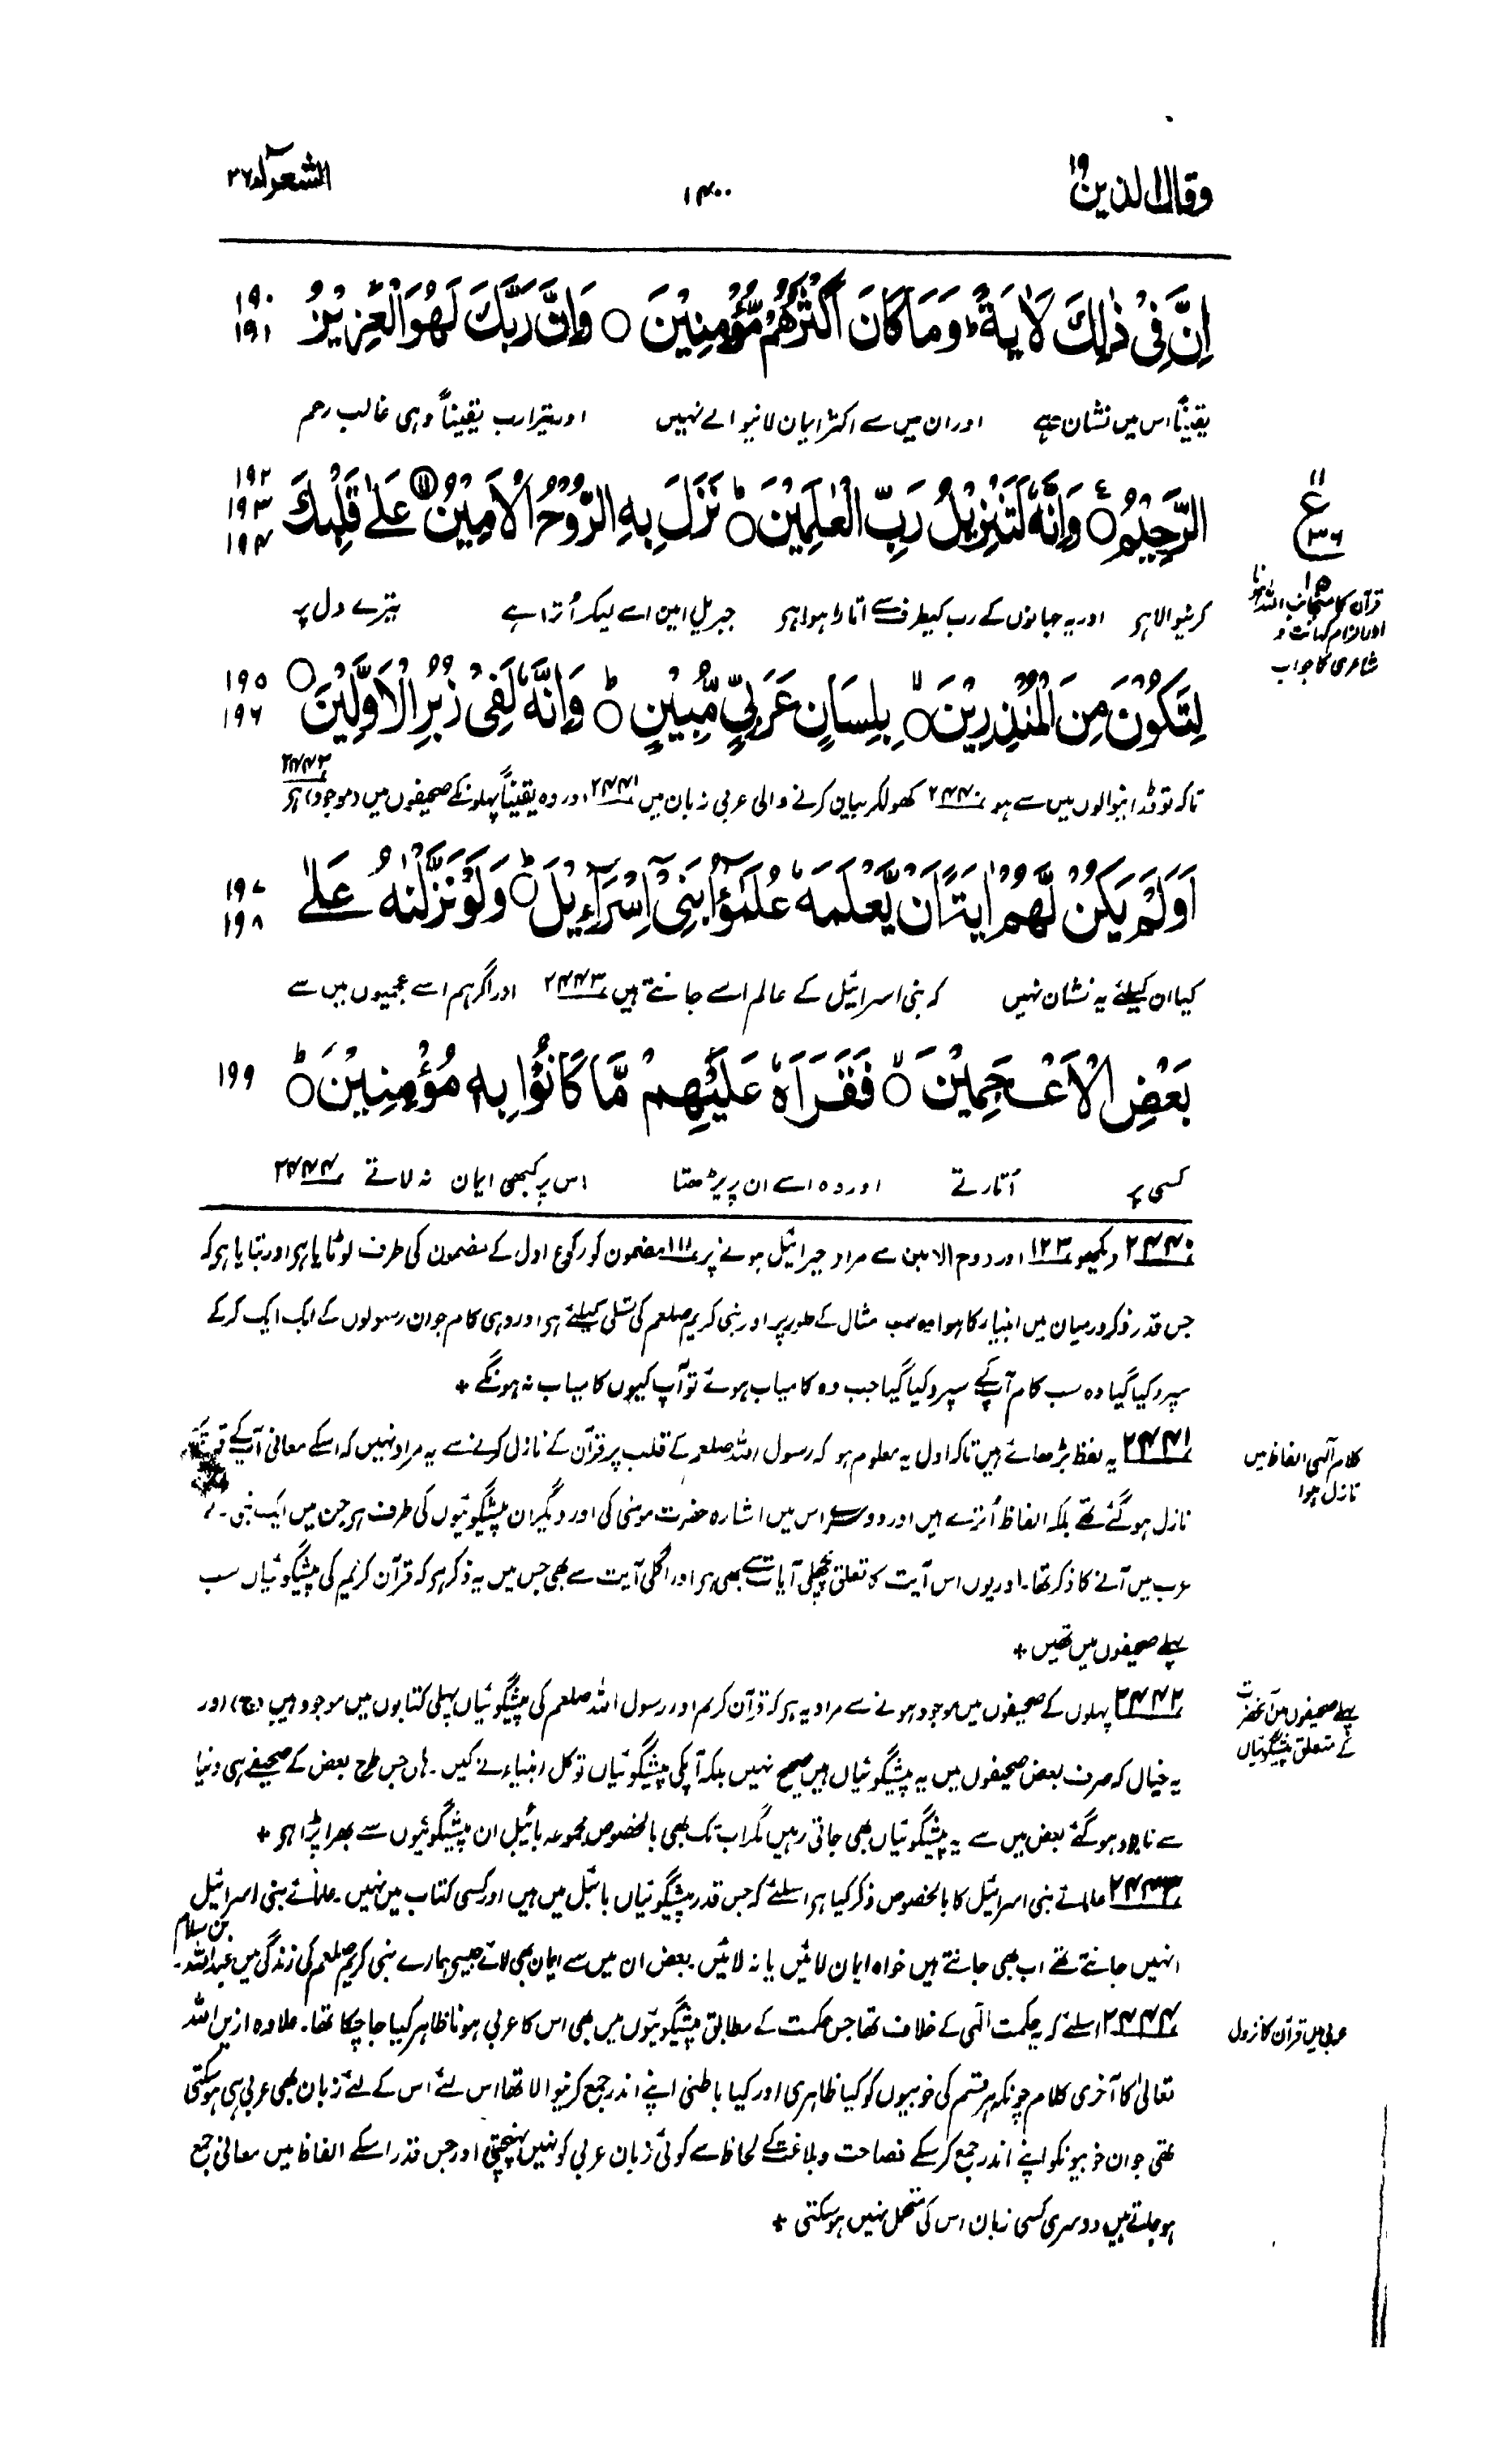 وقال الذین ۱۹
۱۴۰۰
الشعرآء ۲۶
اِنَّ فِیْ ذٰلِکَ لَاٰیَۃً ؕ وَمَا کَانَ اَکْثَرُھُمْ مُّؤْمِنِیْنَ ○ وَاِنَّ رَبَّکَ لَھُوَ الْعَزِیْزُ
۱۹۰
۱۹۱
یقیناً اس میں نشان ہے اور ان میں سے اکثر ایمان لانیوالے نہیں اور تیرا رب یقیناً وہی غالب رحم
الرَّحِیْمُ ○ وَاِنَّہٗ لَتَنْزِیْلُ رَبِّ الْعٰلَمِیْنَ ○ نَزَلَ بِہِ الرُّوْحُ الْاَمِیْنُ ۙ عَلٰی قَلْبِکَ
۱۹۲
۱۹۳
۱۹۴
۱۱
ع
قرآن کا منجانب اللہ ہونا
اور الزام کہانت و
شاعری کا جواب
کرنیوالا ہو اور یہ جہانوں کے رب کیطرف سے اتارا ہوا ہو جبریل امین اسے لیکر اُترا ہے تیرے دل پر
لِتَکُوْنَ مِنَ الْمُنْذِرِیْنَ ○ بِلِسَانٍ عَرَبِیٍّ مُّبِیْنٍ ○ وَاِنَّہٗ لَفِیْ زُبُرِ الْاَوَّلِیْنَ ○
۱۹۵
۱۹۶
تاکہ تو ڈرانیوالوں میں سے ہو ۲۴۴۰ کھولکر بیان کرنے والی عربی زبان میں ۲۴۴۱ اور وہ یقیناً پہلونکے صحیفوں میں (موجود) ہو ۲۴۴۲
اَوَلَمْ یَکُنْ لَّھُمْ اٰیَۃً اَنْ یَّعْلَمَہٗ عُلَمٰٓؤُا بَنِیْٓ اِسْرَآءِیْلَ ○ وَلَوْ نَزَّلْنٰہُ عَلٰی
۱۹۷
۱۹۸
کیا ان کیلئے یہ نشان نہیں کہ بنی اسرائیل کے عالم اسے جانتے ہیں ۲۴۴۳ اور اگر ہم اسے عجمیوں میں سے
بَعْضِ الْاَعْجَمِیْنَ ○ فَقَرَاَہٗ عَلَیْھِمْ مَّا کَانُوْا بِہٖ مُؤْمِنِیْنَ ○
۱۹۹
کسی پر اُتارتے اور وہ اسے ان پر پڑھتا اس پر کبھی ایمان نہ لاتے ۲۴۴۴
۲۴۴۰ دیکھو ۱۲۳ اور روح الامین سے مراد جبرائیل ہونے پر ۱۱۱ مضمون کو رکوع اول کے مضمون کی طرف لوٹایا ہو اور بتایا ہو کہ
جس قدر ذکر درمیان میں انبیا کا ہوا وہ سب مثال کے طور پر اور نبی کریم صلعم کی تسلی کیلئے ہو اور وہی کام جو ان رسولوں کے ایک ایک کر کے
سپرد کیا گیا وہ سب کام آپ کے سپرد کیا گیا جب وہ کامیاب ہوئے تو آپ کیوں کامیاب نہ ہونگے +
۲۴۴۱ یہ لفظ بڑھائے ہیں تاکہ اول یہ معلوم ہو کہ رسول اللہ صلعم کے قلب پر قرآن کے نازل کرنے سے یہ مراد نہیں کہ اسکے معانی آپ کے
کلام آلٰہی الفاظ میں
نازل ہوا
نازل ہو گئے تھے بلکہ الفاظ اُترے ہیں اور دوسرے اس میں اشارہ حضرت موسٰی کی اور دیگر ان پیشگوئیوں کی طرف ہو جن میں ایک نبی کے
عرب میں آنے کا ذکر تھا۔ اور یوں اس آیت کا تعلق پچھلی آیات سے بھی ہو اور اگلی آیت سے بھی جس میں یہ ذکر ہو کہ قرآن کریم کی پیشگوئیاں سب
پہلے صحیفوں میں تھیں +
۲۴۴۲ پہلوں کے صحیفوں میں موجود ہونے سے مراد یہ ہو کہ قرآن کریم اور رسول اللہ صلعم کی پیشگوئیاں پہلی کتابوں میں موجود ہیں (ج) اور
پہلے صحیفوں میں آنحضرت
کے متعلق پیشگوئیاں
یہ خیال کہ صرف بعض صحیفوں میں یہ پیشگوئیاں ہیں صحیح نہیں بلکہ آپکی پیشگوئیاں تو کل انبیاء نے کیں۔ ہاں جس طرح بعض کے صحیفے ہی دنیا
سے نابود ہو گئے بعض میں سے یہ پیشگوئیاں بھی جاتی رہیں مگر اب تک بھی بالخصوص مجموعہ بائیبل ان پیشگوئیوں سے بھرا پڑا ہو +
۲۴۴۳ علمائے بنی اسرائیل کا بالخصوص ذکر کیا ہو اسلئے کہ جس قدر پیشگوئیاں بائبل میں ہیں اور کسی کتاب میں نہیں۔ علمائے بنی اسرائیل
انہیں جانتے تھے اب بھی جانتے ہیں خواہ ایمان لائیں یا نہ لائیں۔ بعض ان میں سے ایمان بھی لائے جیسے ہمارے نبی کریم صلعم کی زندگی میں عبداللہ بن سلام۔
۲۴۴۴ اسلئے کہ یہ حکمت الٰہی کے خلاف تھا جس حکمت کے مطابق پیشگوئیوں میں بھی اس کا عربی ہونا ظاہر کیا جا چکا تھا۔ علاوہ ازیں اللہ
عربی میں قرآن کا نزول
تعالٰی کا آخری کلام چونکہ ہر قسم کی خوبیوں کو کیا ظاہری اور کیا باطنی اپنے اندر جمع کرنیوالا تھا اس لئے اس کے لئے زبان بھی عربی ہی ہو سکتی
تھی جو ان خوبیونکو اپنے اندر جمع کر سکے فصاحت و بلاغت کے لحاظ سے کوئی زبان عربی کو نہیں پہنچتی اور جس قدر اسکے الفاظ میں معانی جمع
ہو جاتے ہیں دوسری کسی زبان اس کی متحمل نہیں ہو سکتی +